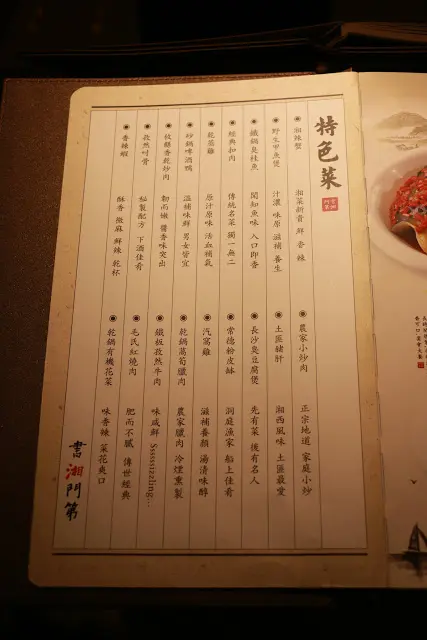 特色菜
湘辣蟹 湘菜新貴 鮮 香 辣
野生甲魚煲 汁濃 味原 滋補 養生
鐵鍋臭桂魚 聞知魚味 入口即香
經典扣肉 傳統名菜 獨一無二
乾蒸雞 原汁原味 活血補氣
砂鍋啤酒鴨 溫補味鮮 男女皆宜
攸縣香乾炒肉 韌而嫩 醬香味突出
孜然吋骨 秘製配方 下酒佳肴
香辣蝦 酥香 微麻 鮮辣 乾杯
農家小炒肉 正宗地道 家庭小炒
土匪豬肝 湘西風味 土匪最愛
長沙臭豆腐煲 先有菜 後有名人
常德粉皮缽 洞庭漁家 船上佳肴
汽窩雞 滋補養顏 湯清味醇
乾鍋萵筍臘肉 農家臘肉 冷煙熏製
鐵板孜然牛肉 味咸鮮 Ssssssizzling...
毛氏紅燒肉 肥而不膩 傳世經典
乾鍋有機花菜 味香辣 菜花爽口
書湘門第